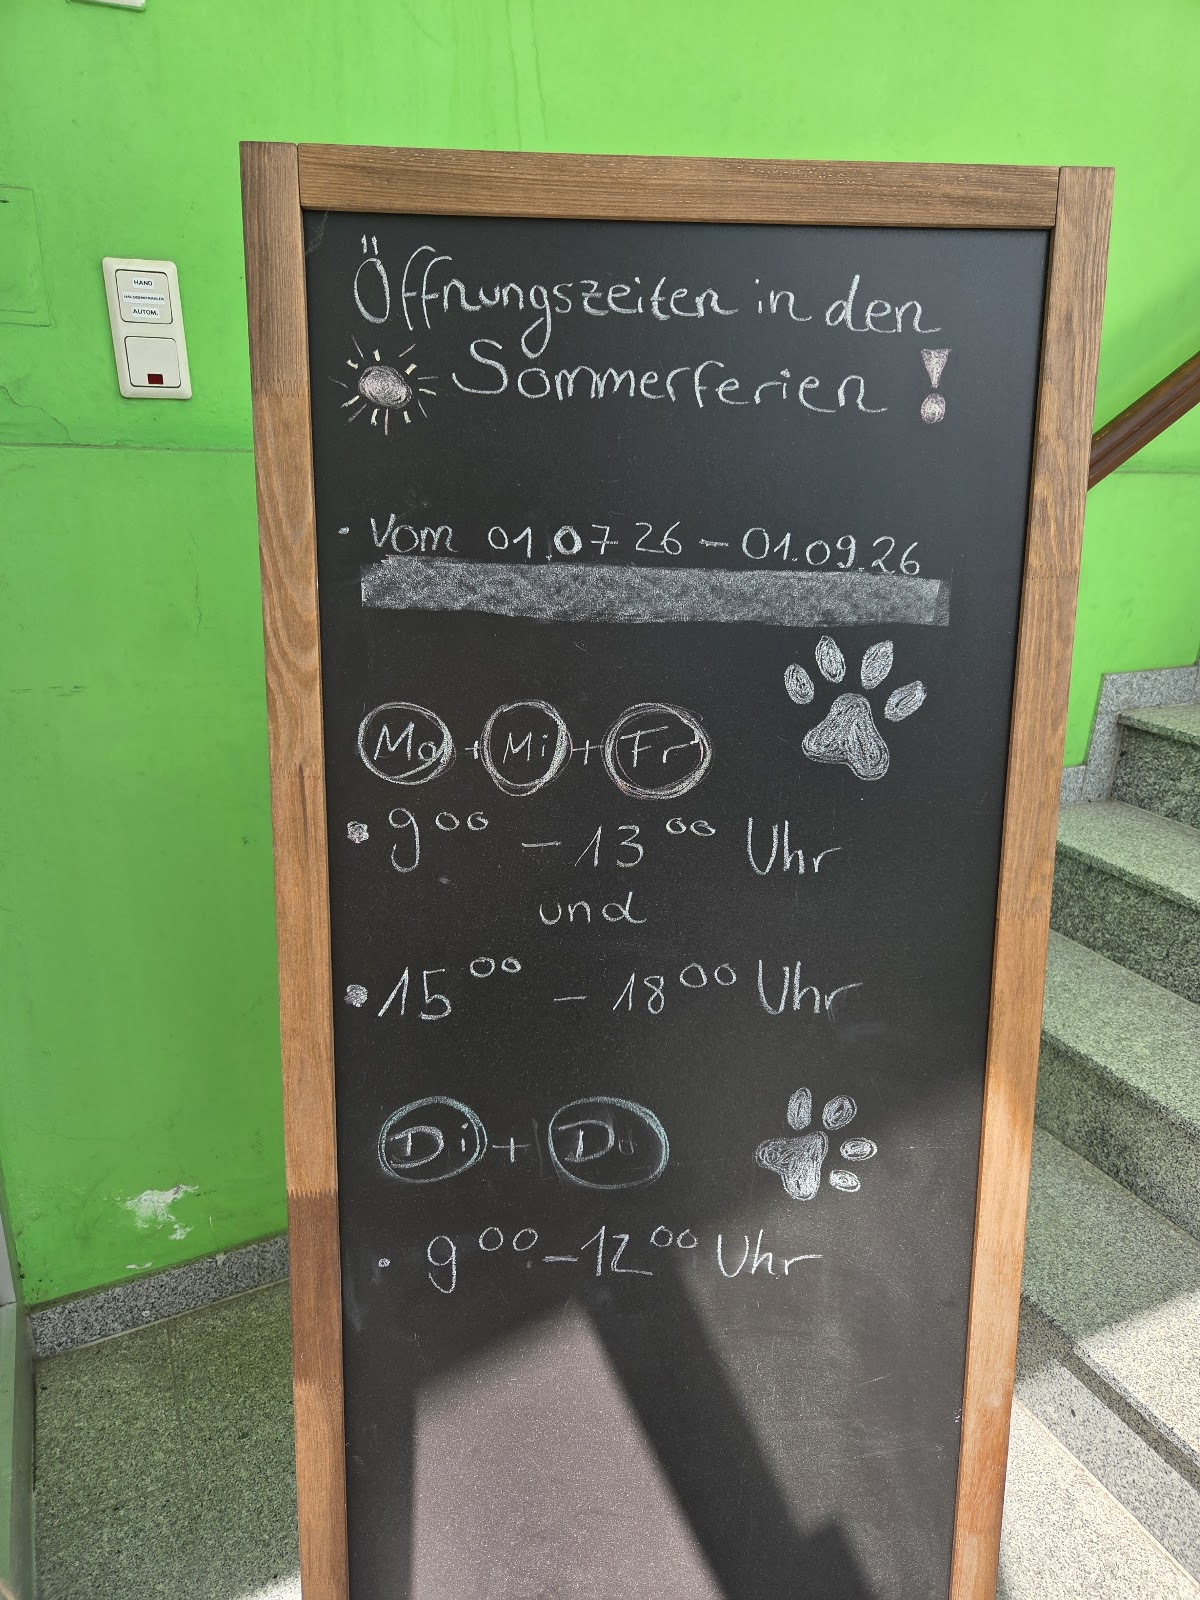 HAND
HALOGENSTRAHLER
AUTOM.
Öffnungszeiten in den
Sommerferien !
· Vom 01.07 26 – 01.09.26
Mo + Mi + Fr
• 9⁰⁰ – 13⁰⁰ Uhr
und
• 15⁰⁰ – 18⁰⁰ Uhr
Di + Do
· 9⁰⁰ – 12⁰⁰ Uhr